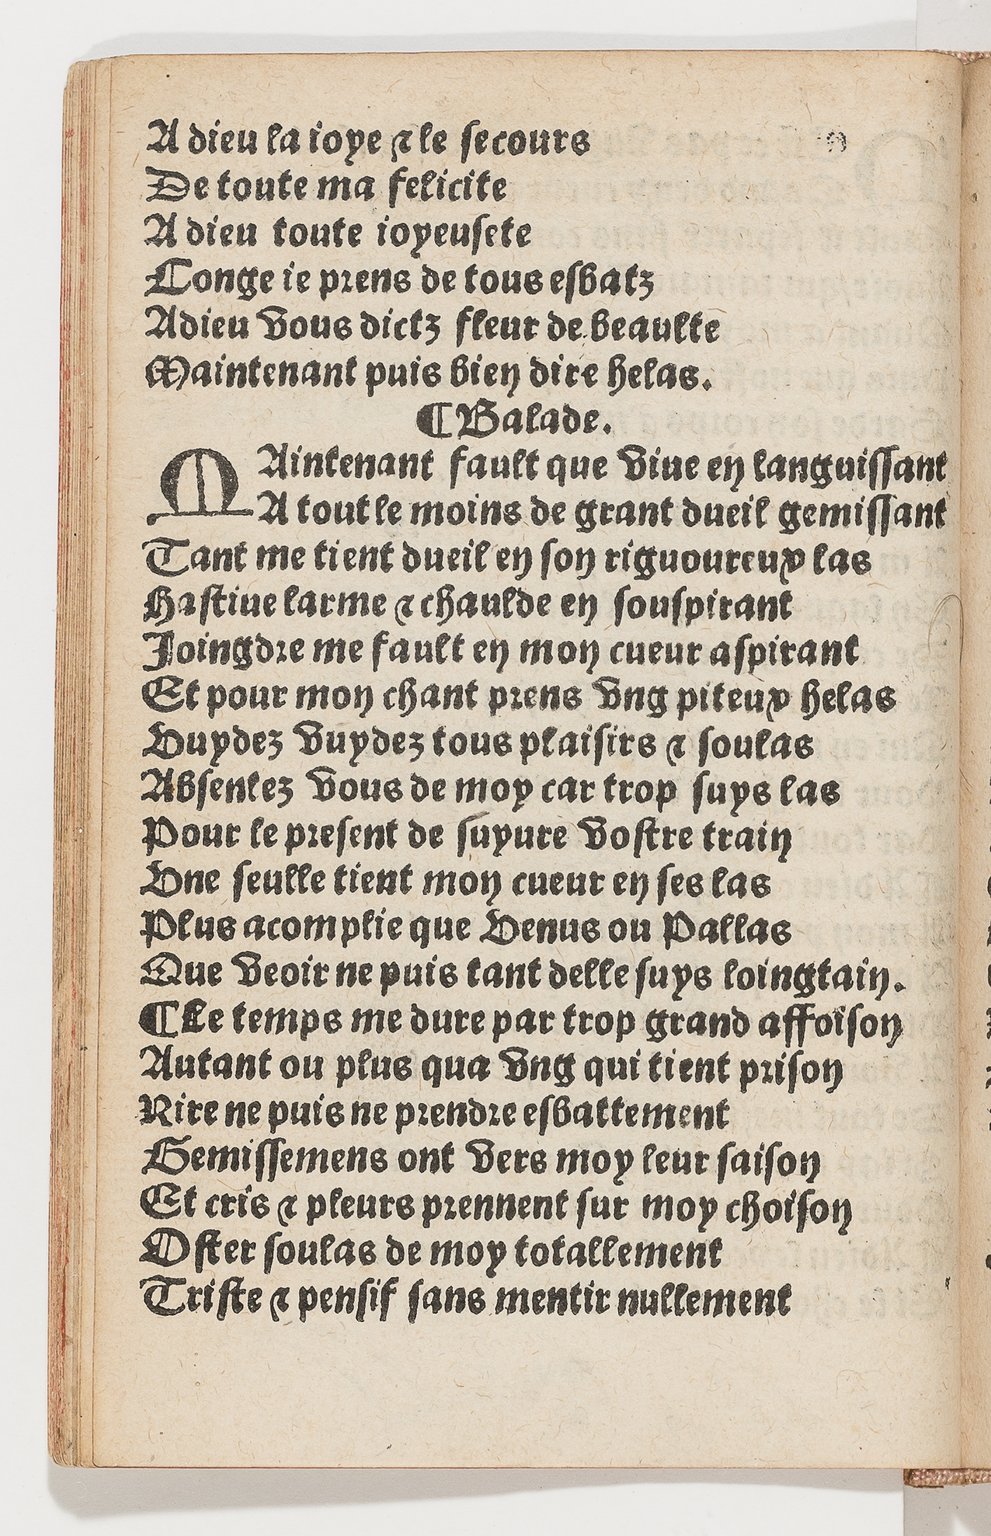 A dieu la ioye ⁊ le secours
De toute ma felicite
A dieu toute ioyeusete
Conge ie prens de tous esbatz
Adieu vous dictz fleur de beaulte
Maintenant puis bien dire helas.
¶Balade.
MAintenant fault que viue en languissant
A tout le moins de grant dueil gemissant
Tant me tient dueil en son riguoureux las
Hastiue larme ⁊ chaulde en souspirant
Joingdre me fault en mon cueur aspirant
Et pour mon chant prens vng piteux helas
Vuydez vuydez tous plaisirs ⁊ soulas
Absentez vous de moy car trop suys las
Pour le present de suyure vostre train
Vne seulle tient mon cueur en ses las
Plus acomplie que Venus ou Pallas
Que veoir ne puis tant delle suys loingtain.
¶Le temps me dure par trop grand affoison
Autant ou plus qua vng qui tient prison
Rire ne puis ne prendre esbattement
Gemissemens ont vers moy leur saison
Et cris ⁊ pleurs prennent sur moy choison
Oster soulas de moy totallement
Triste ⁊ pensif sans mentir nullement